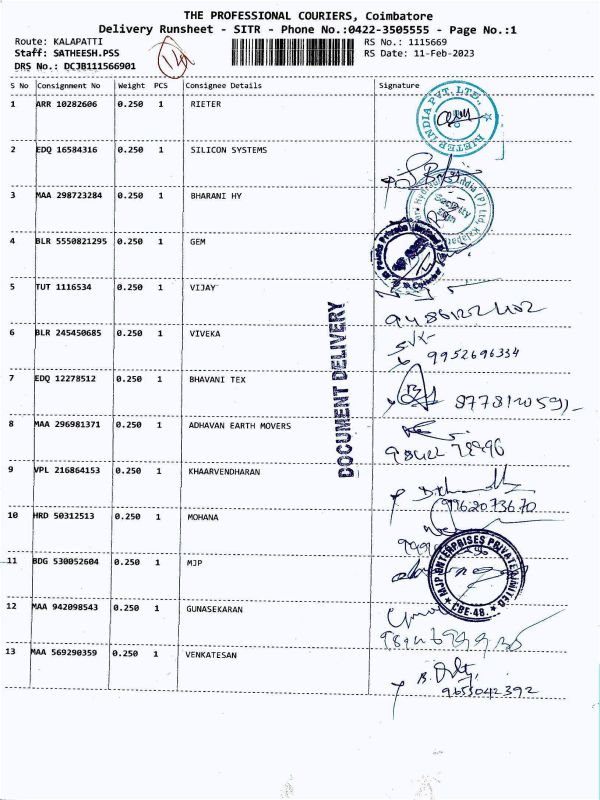 THE PROFESSIONAL COURIERS, Coimbatore
Delivery Runsheet - SITR - Phone No.:0422-3505555 - Page No.:1
Route: KALAPATTI
RS No.: 1115669
Staff: SATHEESH.PSS
RS Date: 11-Feb-2023
DRS No.: DCJB111566901
S No Consignment No Weight PCS Consignee Details Signature
1 ARR 10282606 0.250 1 RIETER
RIETER INDIA PVT. LTD.,
2 EDQ 16584316 0.250 1 SILICON SYSTEMS
3 MAA 298723284 0.250 1 BHARANI HY
Security
4 BLR 5550821295 0.250 1 GEM
5 TUT 1116534 0.250 1 VIJAY
6 BLR 245450685 0.250 1 VIVEKA
9952696334
7 EDQ 12278512 0.250 1 BHAVANI TEX
DOCUMENT DELIVERY
8 MAA 296981371 0.250 1 ADHAVAN EARTH MOVERS
9 VPL 216864153 0.250 1 KHAARVENDHARAN
9962073670
10 HRD 50312513 0.250 1 MOHANA
11 BDG 530052604 0.250 1 MJP
MJP ENTERPRISES PRIVATE LIMITED
* CBE-48. *
12 MAA 942098543 0.250 1 GUNASEKARAN
13 MAA 569290359 0.250 1 VENKATESAN
9655042392